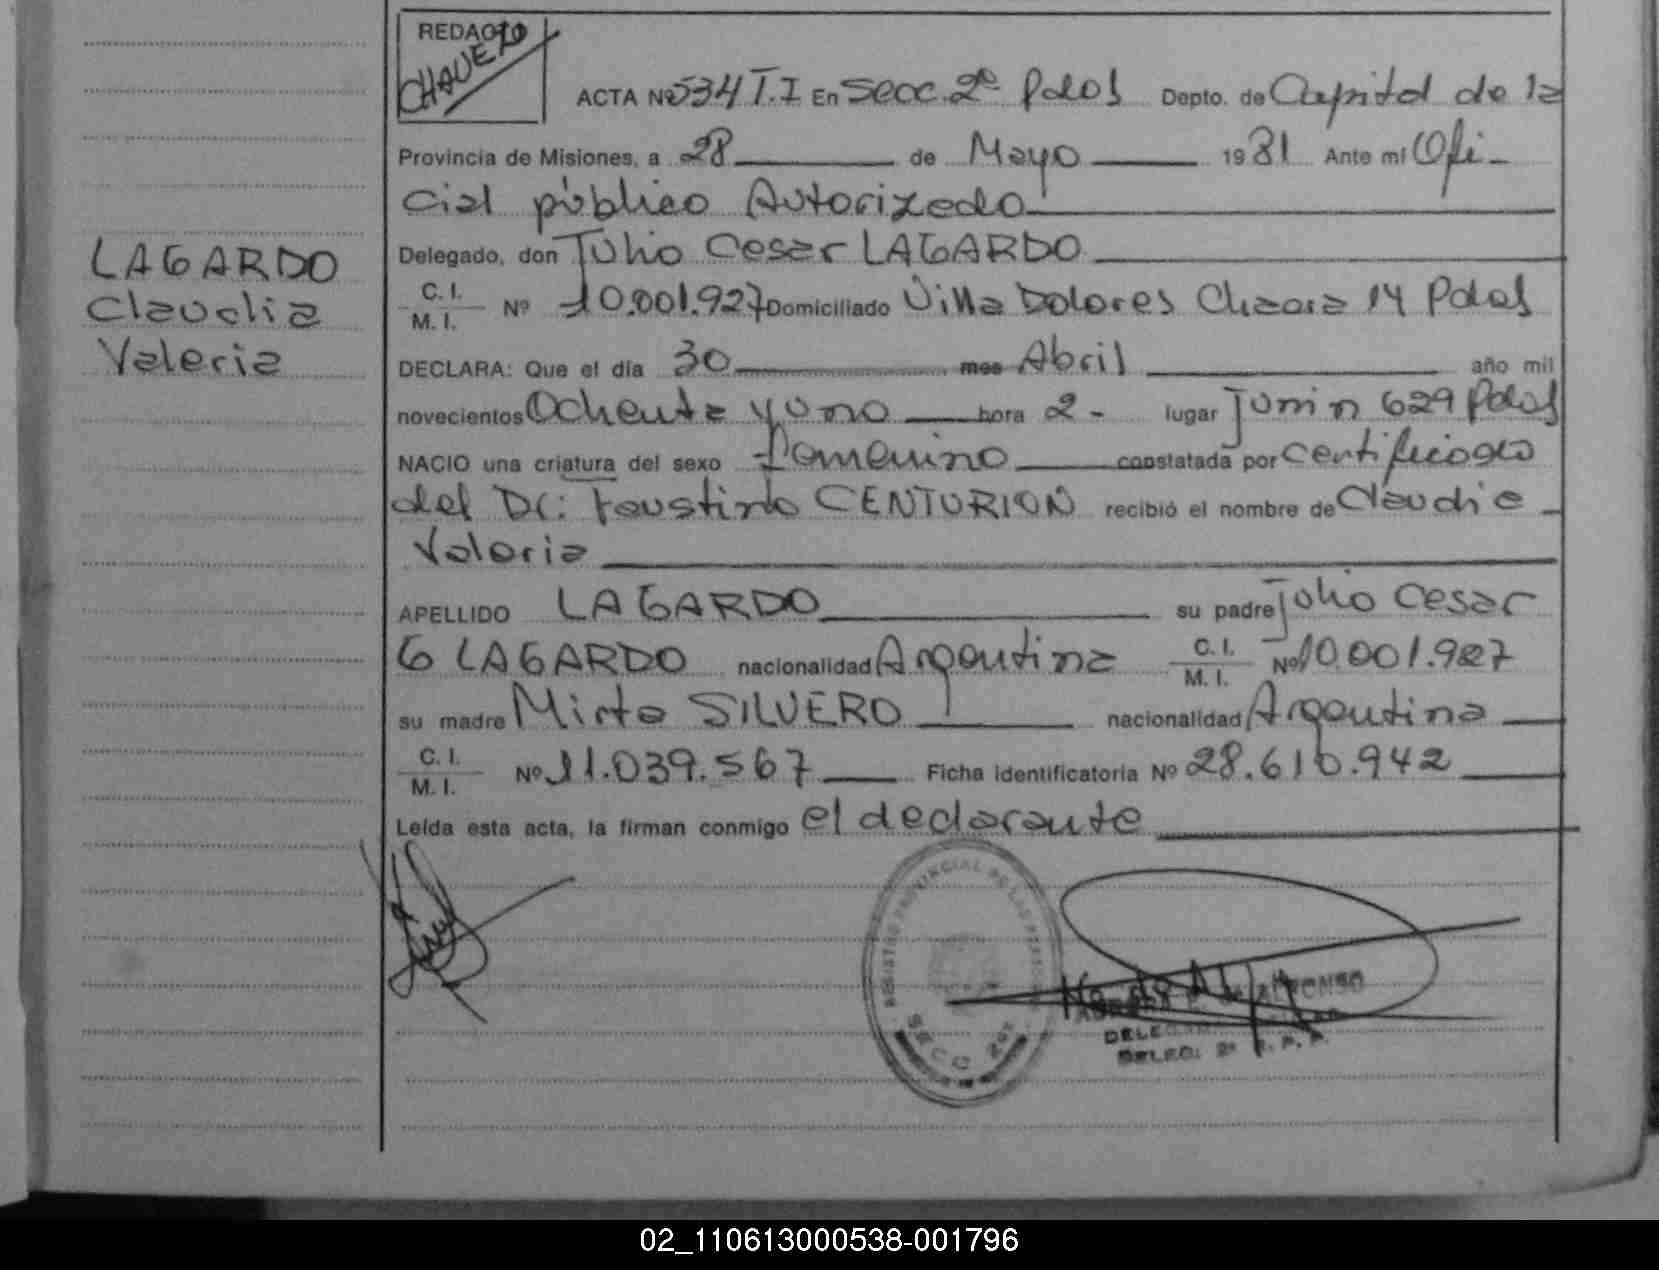 REDACTO
CHAVERO
ACTA Nº 534 T.I En Secc. 2º Pdas Depto. de Capital de la
Provincia de Misiones, a 28 de Mayo 1981 Ante mi Ofi-
cial público Autorizado
LAGARDO
Claudia
Valeria
Delegado, don Julio Cesar LAGARDO
C. I.
M. I. Nº 10.001.927 Domiciliado Villa Dolores Chacra 14 Pdas
DECLARA: Que el día 30 mes Abril año mil
novecientos Ochenta y uno hora 2- lugar Junin 629 Pdas
NACIO una criatura del sexo Femenino constatada por certificado
del Dr: Faustino CENTURION recibió el nombre de Claudia
Valeria
APELLIDO LAGARDO su padre Julio Cesar
G LAGARDO nacionalidad Argentina C. I.
M. I. Nº 10.001.927
su madre Mirta SILVERO nacionalidad Argentina
C. I.
M. I. Nº 11.039.567 Ficha identificatoria Nº 28.610.942
Leída esta acta, la firman conmigo el declarante
REGISTRO PROVINCIAL DE LAS PERSONAS
SECC 2ª
ALFONSO
02_110613000538-001796